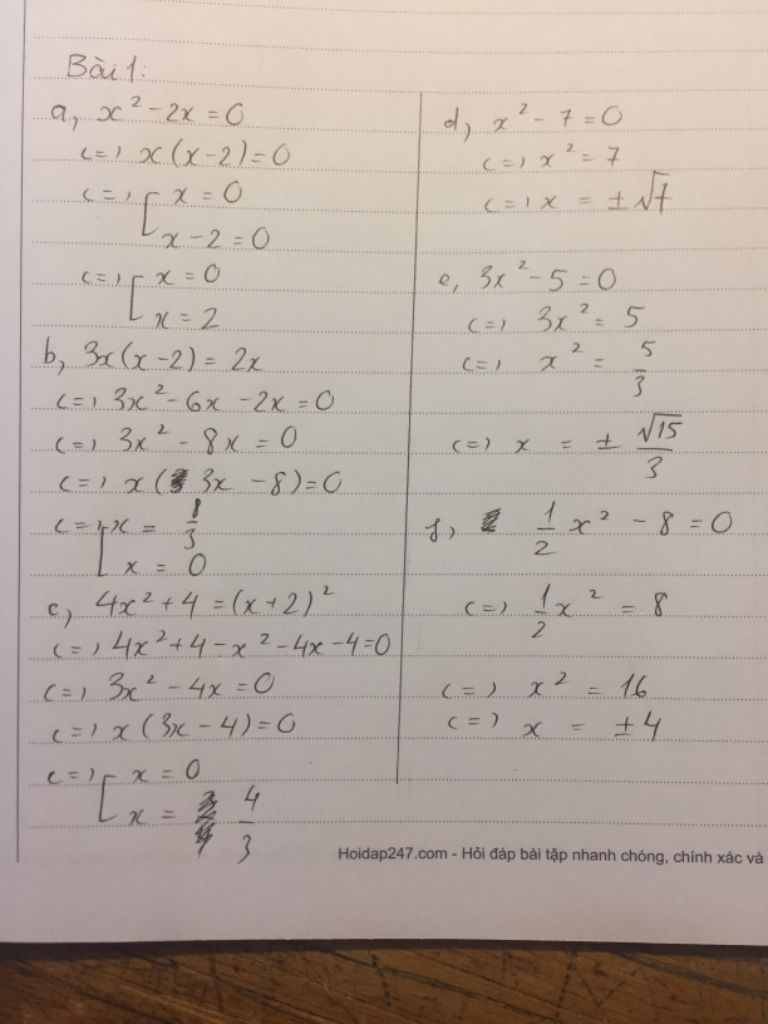 Bài 1:
a, x² - 2x = 0
<=> x(x-2) = 0
<=> [ x = 0
x - 2 = 0
<=> [ x = 0
x = 2
b, 3x(x-2) = 2x
<=> 3x² - 6x - 2x = 0
<=> 3x² - 8x = 0
<=> x(3x - 8) = 0
<=> [ x = 8/3
x = 0
c, 4x² + 4 = (x+2)²
<=> 4x² + 4 - x² - 4x - 4 = 0
<=> 3x² - 4x = 0
<=> x(3x - 4) = 0
<=> [ x = 0
x = 4/3
d, x² - 7 = 0
<=> x² = 7
<=> x = ±√7
e, 3x² - 5 = 0
<=> 3x² = 5
<=> x² = 5/3
<=> x = ± √15/3
f, 1/2 x² - 8 = 0
<=> 1/2 x² = 8
<=> x² = 16
<=> x = ±4
Hoidap247.com - Hỏi đáp bài tập nhanh chóng, chính xác và